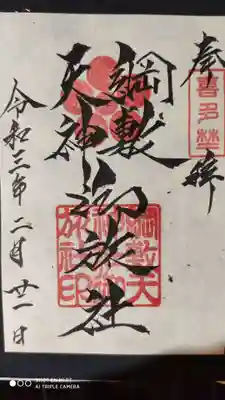 奉拝
喜多埜
綱敷
天神
御旅社
綱敷天
神社御
旅社印
令和三年二月廿一日
AI TRIPLE CAMERA